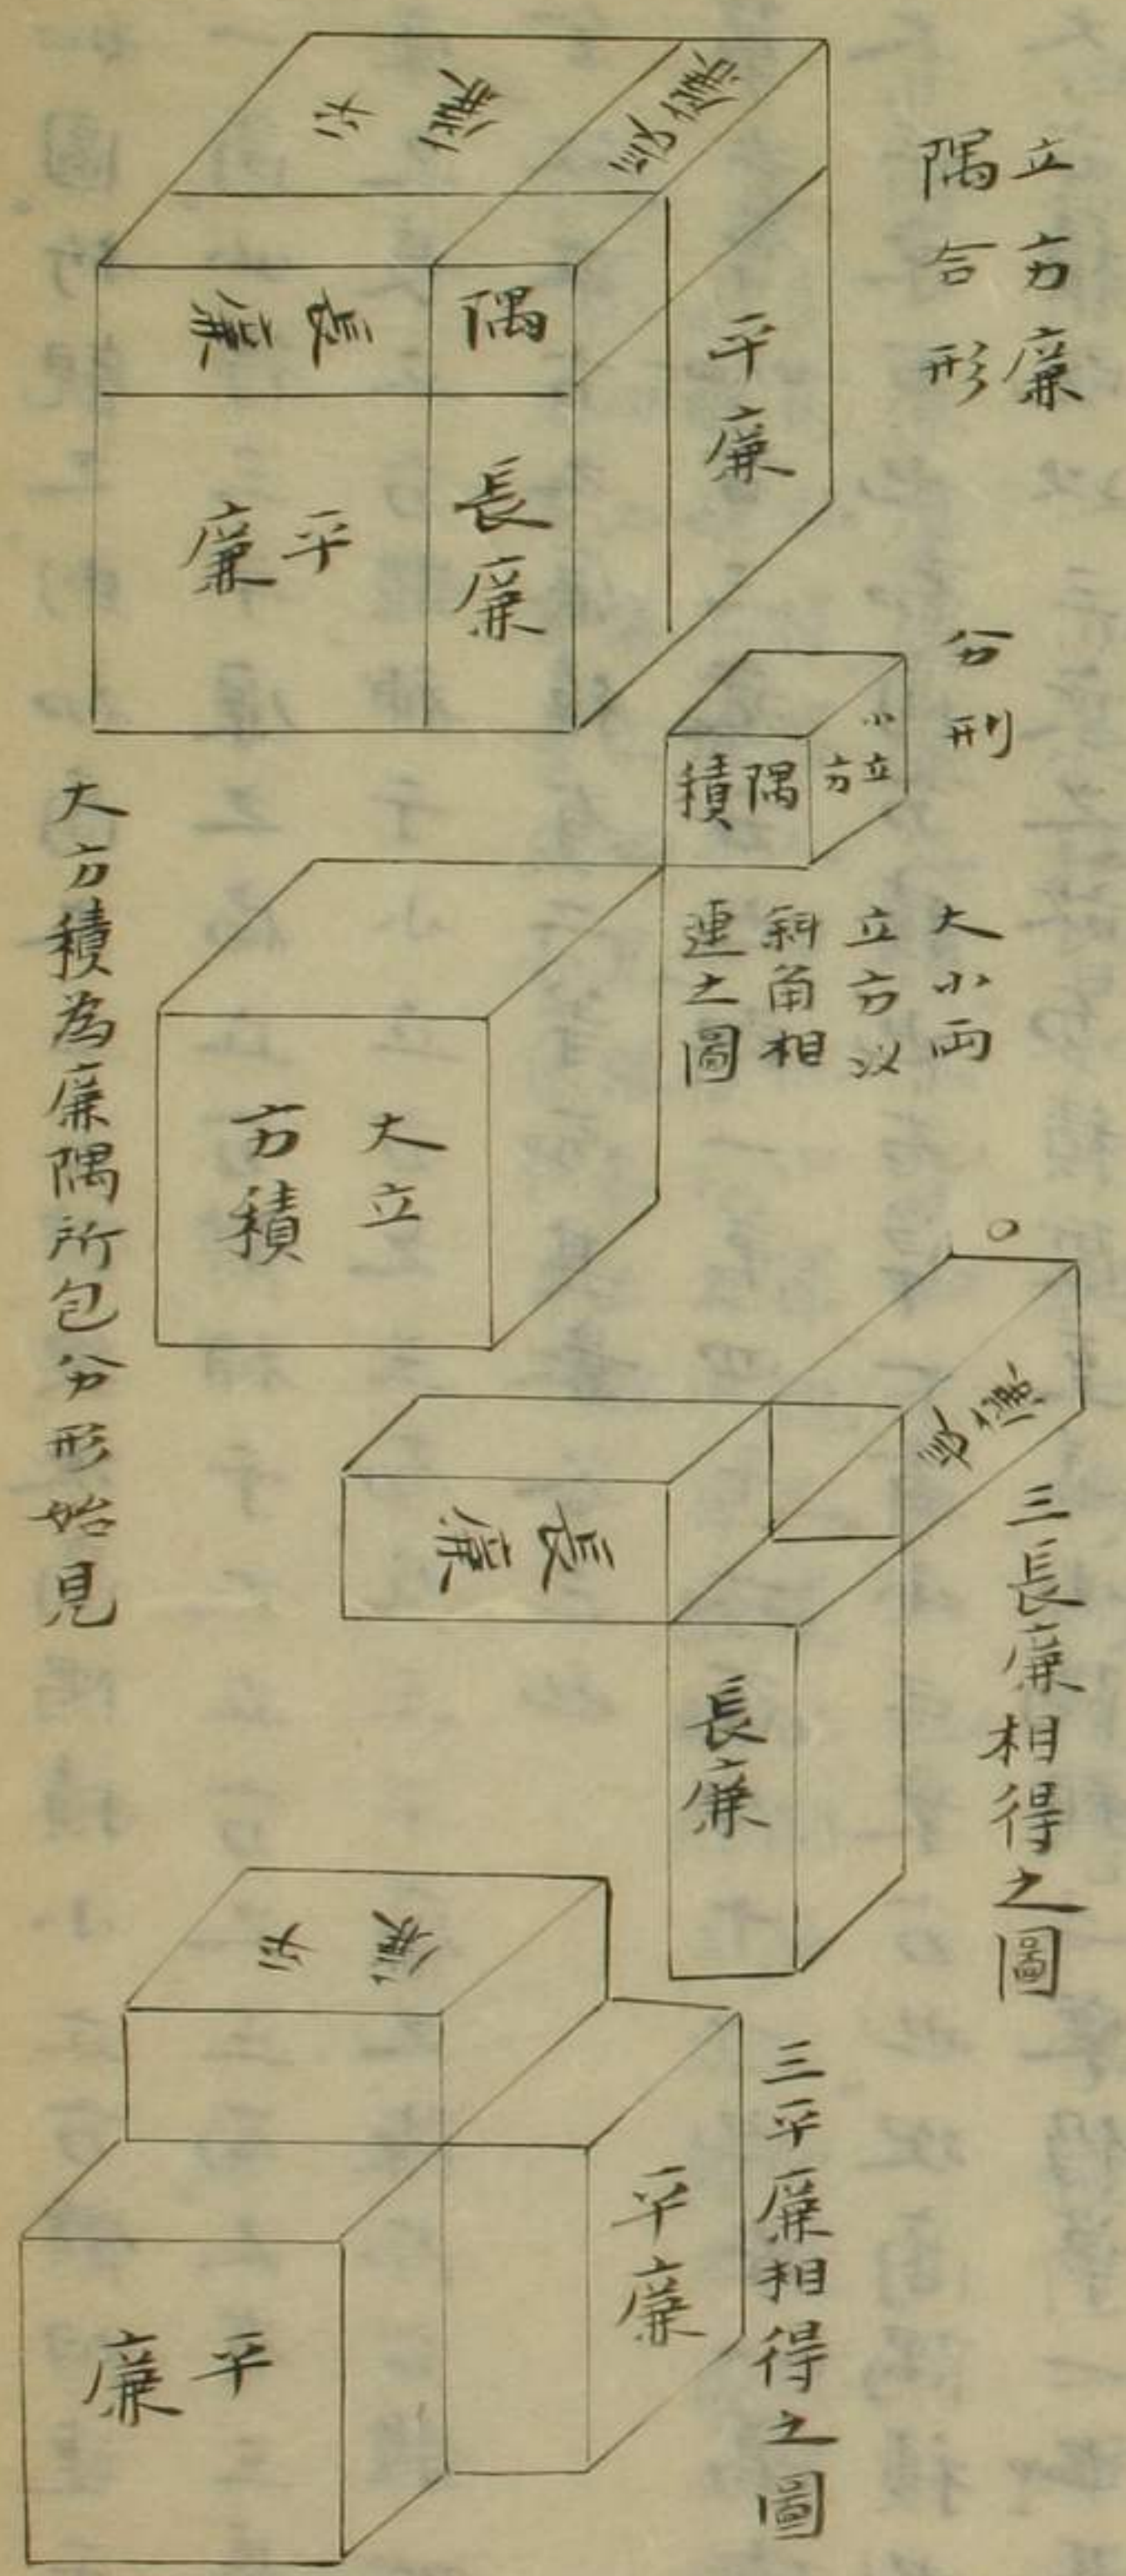 立方廉
隅合形
平廉
長廉
隅
長廉
平廉
平廉
長廉
分形
小立方
隅積
大小兩
立方以
斜角相
連之圖
大立
方積
大方積為廉隅所包分形始見
三長廉相得之圖
長廉
長廉
長廉
三平廉相得之圖
平廉
平廉
平廉